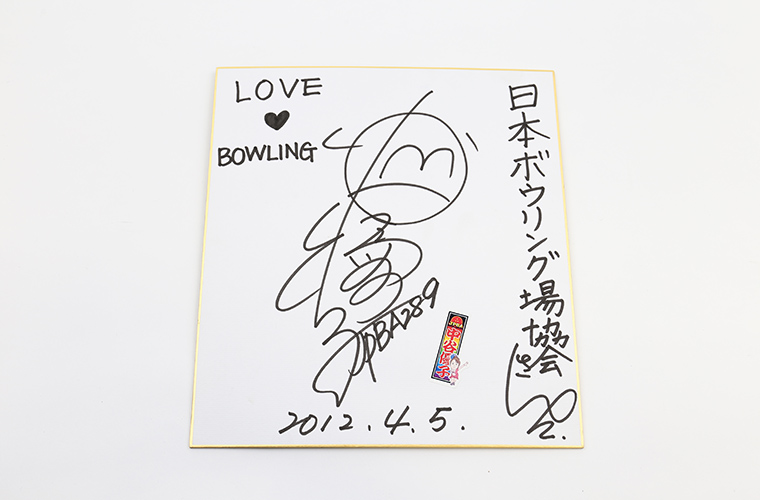 LOVE
♥
BOWLING
日本ボウリング場協会
さん江
JPBA289
中谷優子
2012.4.5.